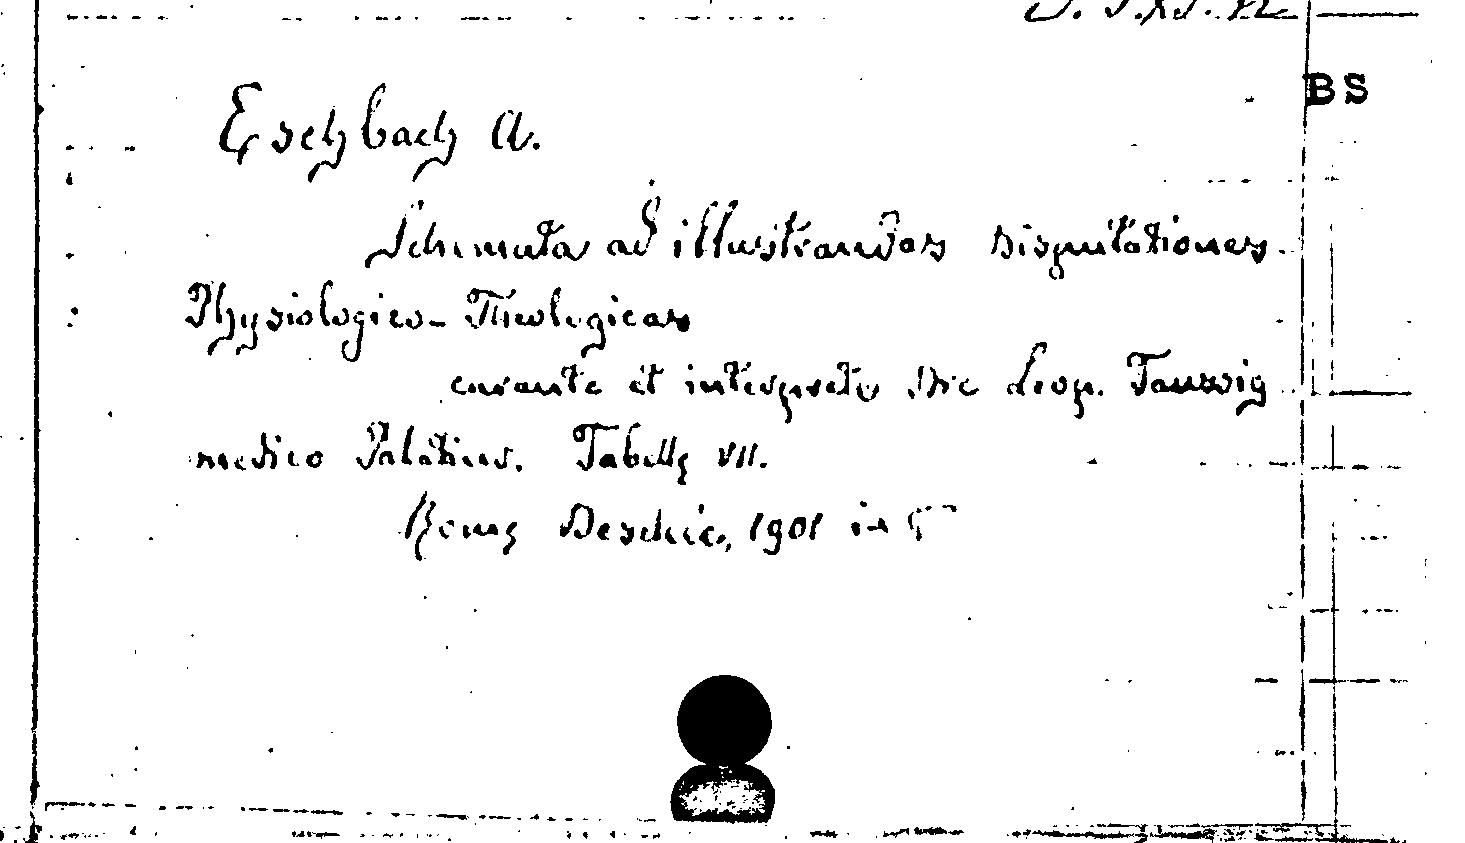 BS
Eschbach A.
Schemata ad illustrandas disputationes
Physiologico-Theologicas
curante et interprete Nic Leop. Tauswig
medico Palatinus. Tabellę VII.
Romę Desclée, 1901 in